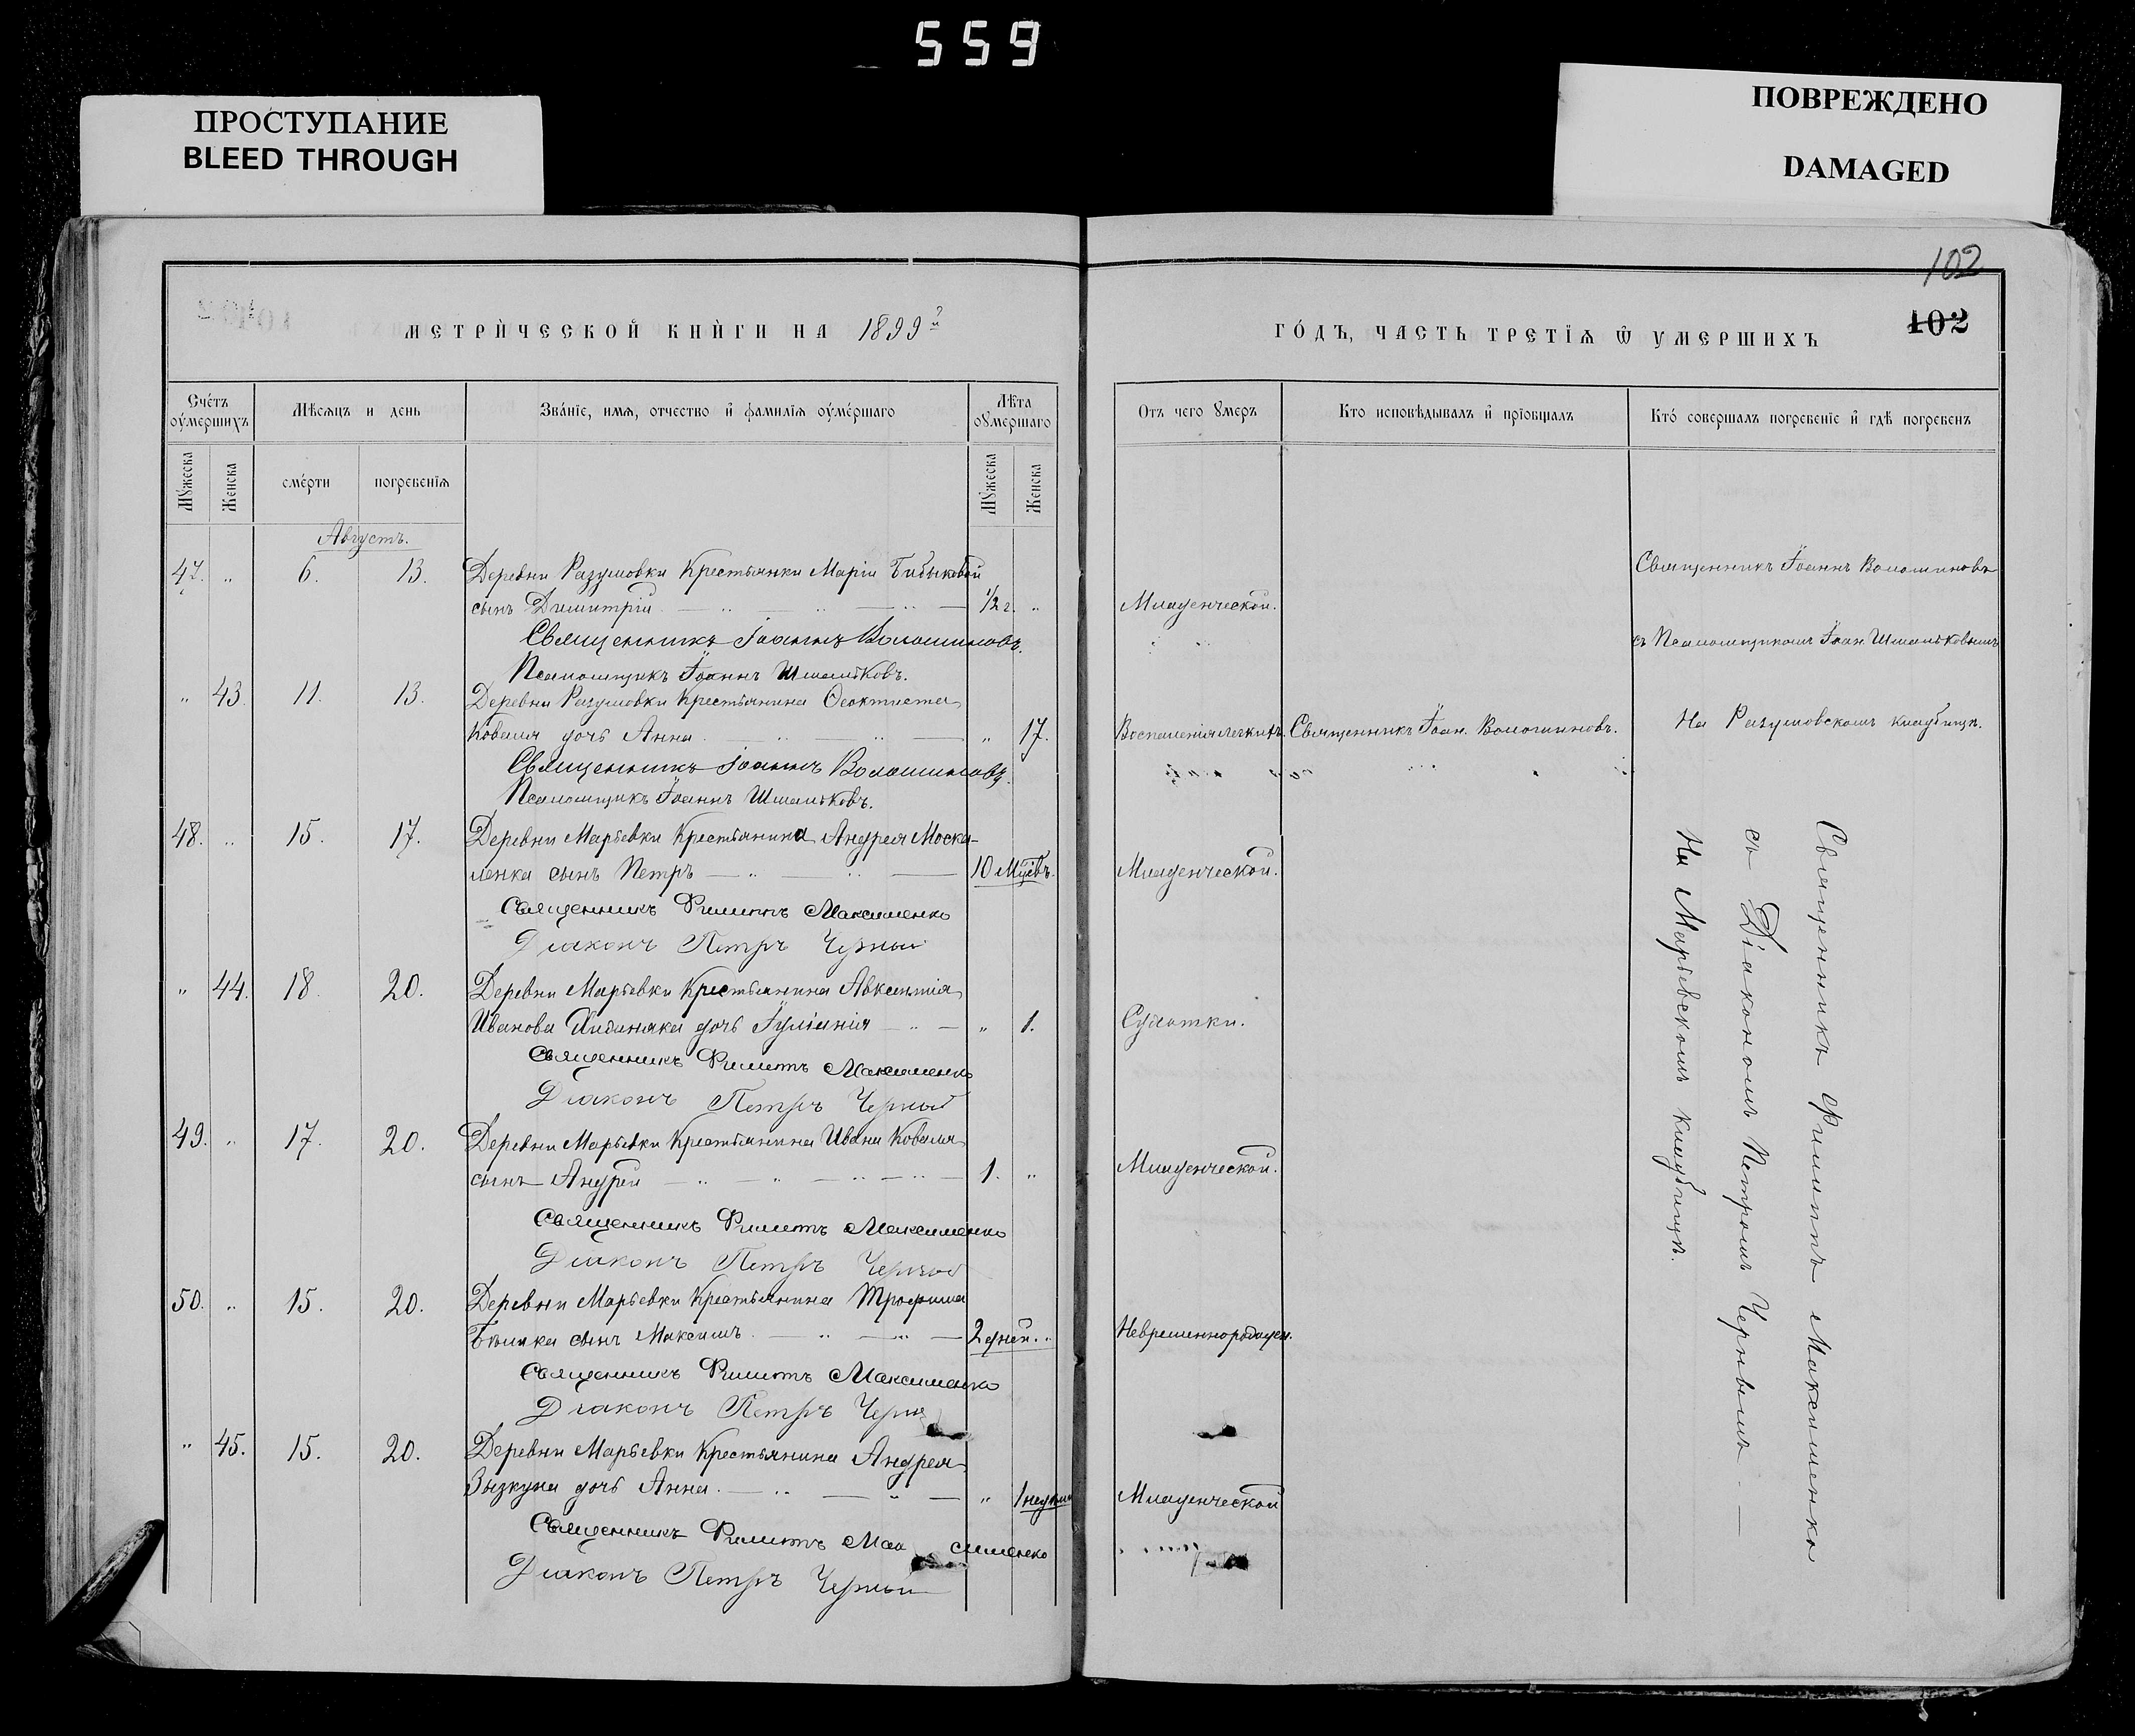 559
ПРОСТУПАНИЕ
BLEED THROUGH
ПОВРЕЖДЕНО
DAMAGED
102
102
МЕТРИ́ЧЕСКОЙ КНИ́ГИ НА 1899й
ГО́ДЪ, ЧАСТЬ ТРЕТІѦ Ѿ УМЕРШИХЪ
Счéтъ оумершихъ
Мѣсяцъ и день
Зва́ніе, имя, отчество и фамилія оуме́ршаго
Лѣта оумершаго
Мужеска
Женска
сме́рти
погребенія
Мужеска
Женска
Отъ чего умеръ
Кто исповѣдывалъ и пріобщалъ
Кто́ совершалъ погребеніе и гдѣ погребенъ
Августъ.
47. " 6. 13. Деревни Разумовки Крестьянки Маріи Бибиковой
сынъ Димитрій 1/2 г. " Младенческой.
Священникъ Іоаннъ Волошиновъ.
Псаломщикъ Іоаннъ Шмальковъ.
Священникъ Іоаннъ Волошиновъ
съ Псаломщикомъ Іоан Шмальковымъ
" 43. 11. 13. Деревни Разумовки Крестьянина Ѳеоктиста
Коваля дочь Анна " 17. Воспаленія легкихъ. Священникъ Іоан. Волошиновъ. На Разумовскомъ кладбищѣ.
Священникъ Іоаннъ Волошиновъ.
Псаломщикъ Іоаннъ Шмальковъ.
48. " 15. 17. Деревни Марьевки Крестьянина Андрея Моска-
ленка сынъ Петръ 10 Мцевъ. Младенческой.
Священникъ Филиппъ Максименко
Діаконъ Петръ Черный
" 44. 18. 20. Деревни Марьевки Крестьянина Авксентія
Иванова дочь Іуліанія " 1. Сухотки.
Священникъ Филиппъ Максименко
Діаконъ Петръ Черный
49. " 17. 20. Деревни Марьевки Крестьянина Ивана Коваля
сынъ Андрей 1. " Младенческой.
Священникъ Филиппъ Максименко
Діаконъ Петръ Черный
50. " 15. 20. Деревни Марьевки Крестьянина Трофима
сынъ Максимъ. 2 дней. "
Священникъ Филиппъ Максименко
Діаконъ Петръ Черны
" 45. 15. 20. Деревни Марьевки Крестьянина Андрея
дочь Анна. " 1 недели Младенческой
Священникъ Филиппъ Максименко
Діаконъ Петръ Черный
Священникъ Филиппъ Максименко
съ Діакономъ Петромъ Чернымъ.
На Марьевскомъ кладбищѣ.